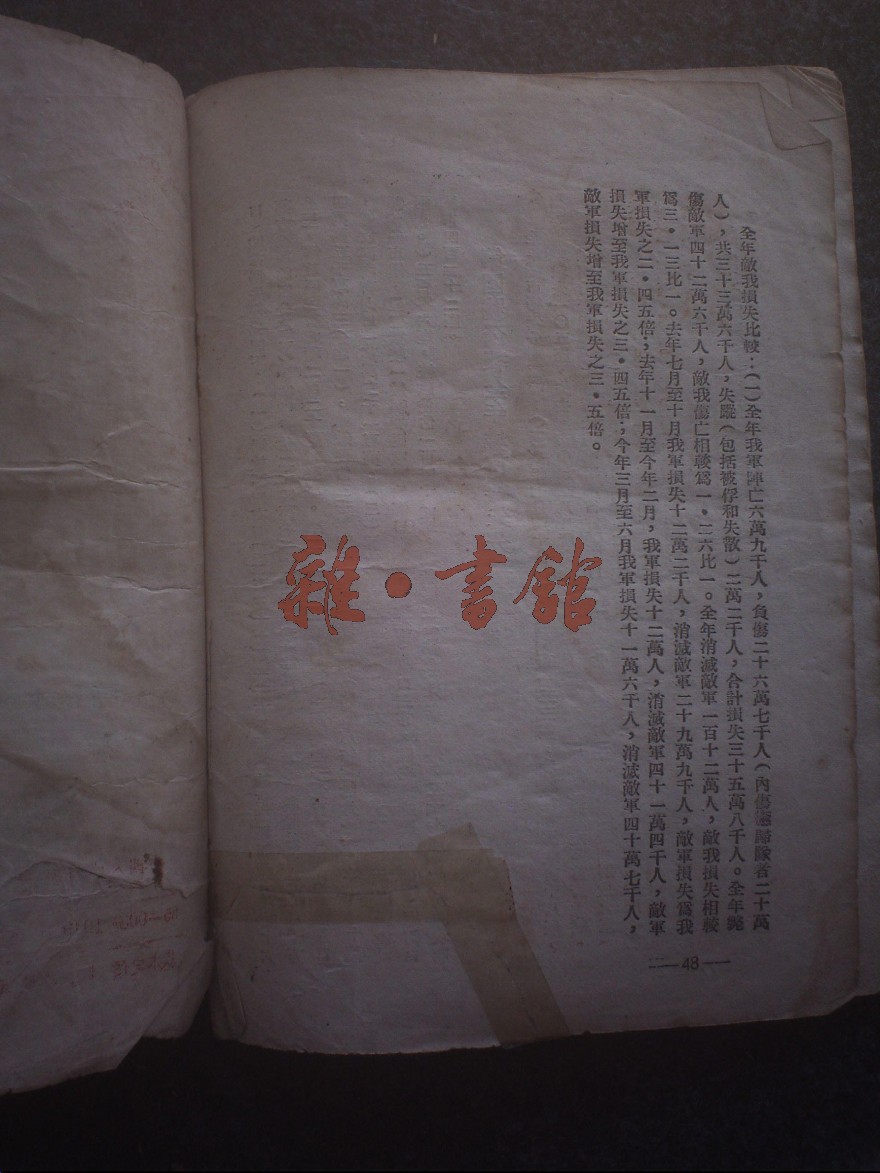 全年敵我損失比較：（一）全年我軍陣亡六萬九千人，負傷二十六萬七千人（內傷癒歸隊者二十萬
人），共三十三萬六千人，失蹤（包括被俘和失散）二萬二千人，合計損失三十五萬八千人。全年斃
傷敵軍四十二萬六千人，敵我傷亡相較爲一・二六比一。全年消滅敵軍一百十二萬人，敵我損失相較
爲三・一三比一。去年七月至十月我軍損失十二萬二千人，消滅敵軍二十九萬九千人，敵軍損失爲我
軍損失之二・四五倍；去年十一月至今年二月，我軍損失十二萬人，消滅敵軍四十一萬四千人，敵軍
損失增至我軍損失之三・四五倍；今年三月至六月我軍損失十一萬六千人，消滅敵軍四十萬七千人，
敵軍損失增至我軍損失之三・五倍。
—48—
雜・書館